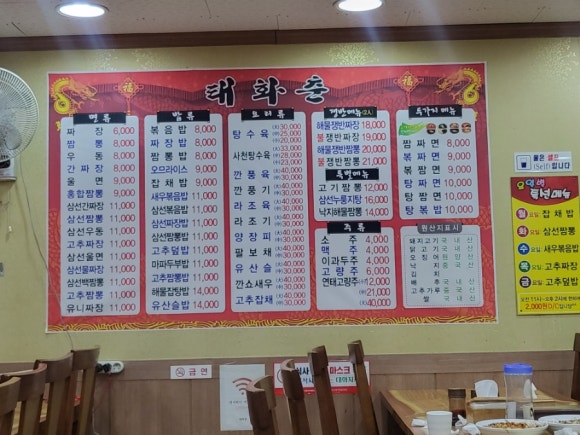 태화촌
福
福
면류
짜장 6,000
짬뽕 8,000
우동 8,000
간짜장 8,000
울면 9,000
홍합짬뽕 9,000
삼선간짜장 11,000
삼선짬뽕 11,000
삼선우동 11,000
고추짜장 11,000
삼선울면 11,000
삼선물짜장 11,000
삼선백짬뽕 11,000
고추짬뽕 11,000
유니짜장 11,000
밥류
볶음밥 8,000
짜장밥 8,000
짬뽕밥 9,000
오므라이스 9,000
잡채밥 9,000
새우볶음밥
삼선볶음밥
삼선짜장밥
삼선짬뽕밥
고추덮밥
마파두부밥
고추짬뽕밥
해물잡탕밥 14,000
유산슬밥 14,000
요리류
탕수육
사천탕수육
깐풍육
깐풍기
라조육
라조기
양장피
팔보채
유산슬
깐쇼새우
고추잡채
쟁반메뉴(2人)
해물쟁반짜장 18,000
불쟁반짜장 19,000
해물쟁반짬뽕 20,000
불쟁반짬뽕 21,000
특별메뉴
고기짬뽕 12,000
삼선누룽지탕 16,000
낙지해물짬뽕 14,000
주류
소주 4,000
맥주 4,000
이과두주 4,000
고량주 6,000
연태고량주 12,000
21,000
40,000
두가지메뉴
짬짜면 8,000
볶짜면 9,000
볶짬면 9,000
탕짜면 10,000
탕짬면 10,000
탕볶밥 10,000
원산지표시
돼지고기 국내산
닭고기
오징어
낙지 중국산
김치
배추 국내산
고추가루 중국산
쌀 국내산
물은 셀프
(Self) 입니다
요일별
특선메뉴
월요일 잡채밥
화요일 삼선짬뽕
수요일 새우볶음밥
목요일 고추짜장
금요일 고추덮밥
금연
마스크